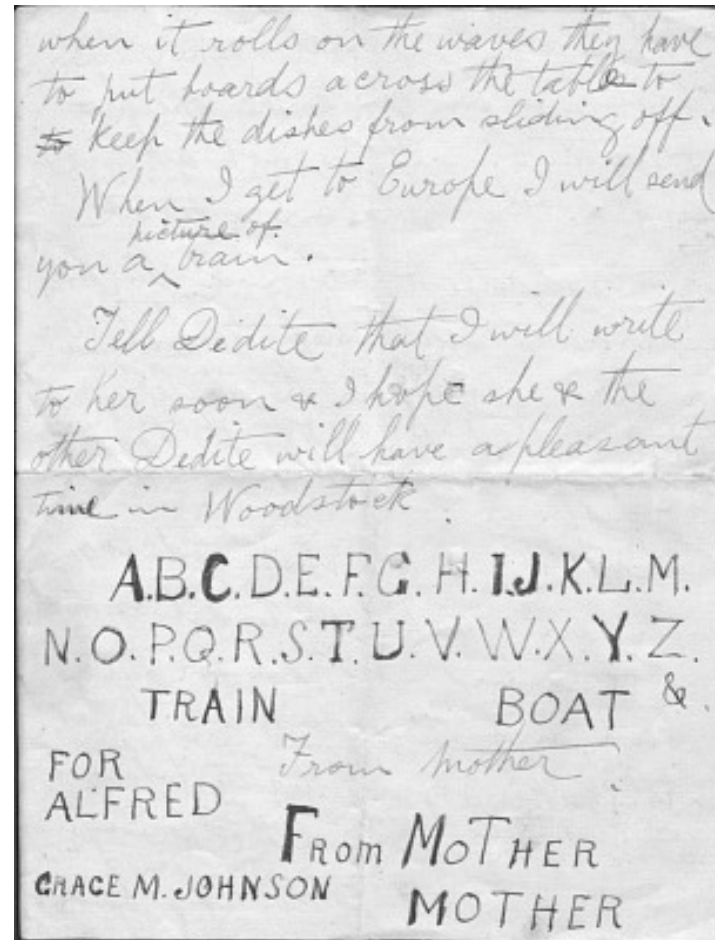 when it rolls on the waves they have
to put boards across the tables to
to keep the dishes from sliding off.
When I get to Europe I will send
picture of
you a ^ train.
Tell Dedite that I will write
to her soon & I hope she & the
other Dedite will have a pleasant
time in Woodstock
A.B.C.D.E.F.G.H.I.J.K.L.M.
N.O.P.Q.R.S.T.U.V.W.X.Y.Z.
TRAIN BOAT &.
FOR From Mother
ALFRED
From MOTHER
GRACE M. JOHNSON
MOTHER